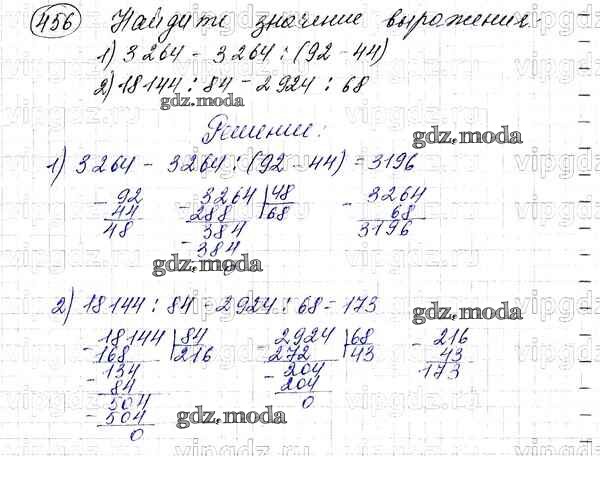 456 Найдите значение выражения.
1) 3264 - 3264 : (92 - 44)
2) 18144 : 84 - 2924 : 68
gdz.moda
Решение:
gdz.moda
1) 3264 - 3264 : (92 - 44) = 3196
- 92 - 3264 | 48 - 3264
44 288 | 68 68
48 384 3196
- 384
0
gdz.moda
2) 18144 : 84 - 2924 : 68 = 173
gdz.moda
- 18144 | 84 - 2924 | 68 - 216
168 | 216 272 | 43 43
- 134 - 204 173
84 204
- 504 0
504
0
gdz.moda